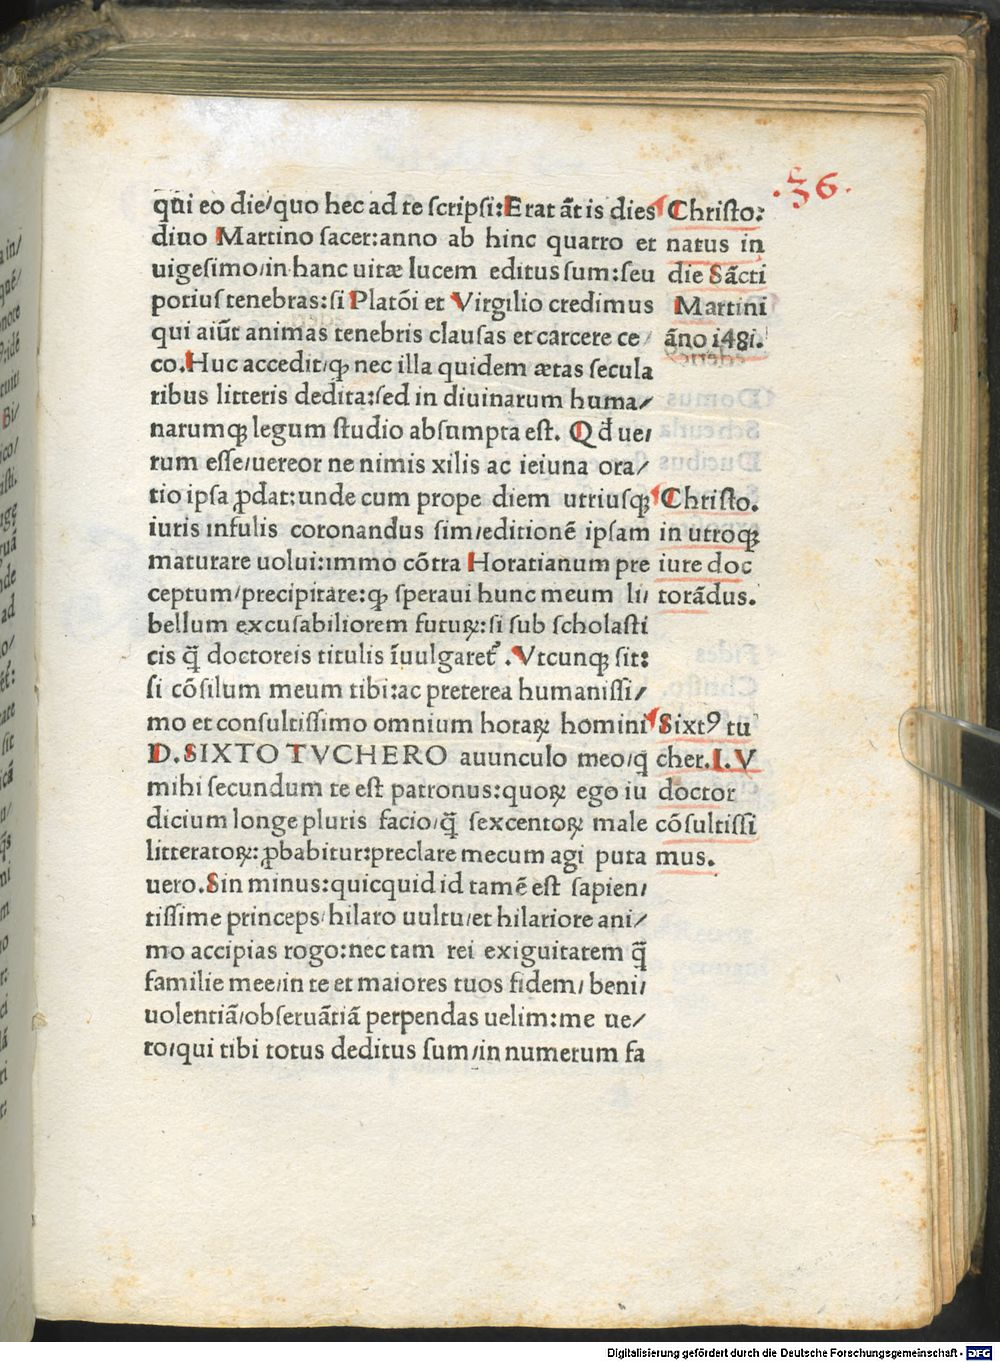 .36.
qui eo die/quo hec ad te scripsi:Erat āt is dies
diuo Martino sacer:anno ab hinc quarto et
uigesimo/in hanc uitæ lucem editus sum:seu
potius tenebras:si Platōi et Virgilio credimus
qui aiūt animas tenebris clausas et carcere ce/
co.Huc accedit/ꝙ nec illa quidem ætas secula
ribus litteris dedita:sed in diuinarum huma/
narumqꝫ legum studio absumpta est. Qd ue/
rum esse/uereor ne nimis xilis ac ieiuna ora/
tio ipsa ꝓdat:unde cum prope diem utriusqꝫ
iuris infulis coronandus sim/editionē ipsam
maturare uolui:immo cōtra Horatianum pre
ceptum/precipitare:ꝙ speraui hunc meum li/
bellum excusabiliorem futuꝝ:si sub scholasti
cis q̄ doctoreis titulis īuulgaret᷑.Vtcunqꝫ sit:
si cōsilum meum tibi:ac preterea humanissi/
mo et consultissimo omnium horaꝝ homini
D.SIXTO TVCHERO auunculo meo/q
mihi secundum te est patronus:quoꝝ ego iu
dicium longe pluris facio/q̄ sexcentoꝝ male
litteratoꝝ:ꝓbabitur:preclare mecum agi puta
uero.Sin minus:quicquid id tamē est sapien/
tissime princeps/hilaro uultu/et hilariore ani/
mo accipias rogo:nec tam rei exiguitatem q̄
familie mee/in te et maiores tuos fidem/beni/
uolentiā/obseruātiā perpendas uelim:me ue/
ro/qui tibi totus deditus sum/in numerum fa
Christo:
natus in
die Sācti
Martini
āno 1481.
Christo.
in utroqꝫ
iure doc
torādus.
Sixtꝰ tu
cher.I.V
doctor
cōsultissi
mus.
Digitalisierung gefördert durch die Deutsche Forschungsgemeinschaft - DFG